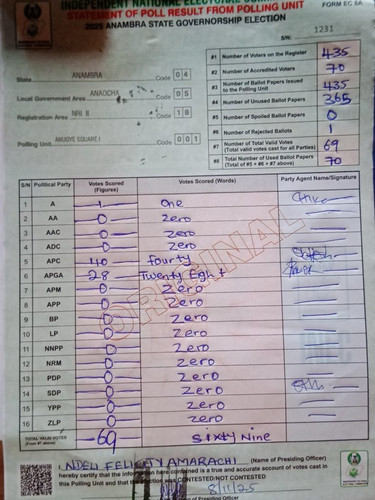 INDEPENDENT NATIONAL ELECTORAL
FORM EC 8A
STATEMENT OF POLL RESULT FROM POLLING UNIT
2025 ANAMBRA STATE GOVERNORSHIP ELECTION
S/N: 1231
State ANAMBRA Code 04
Local Government Area ANAOCHA Code 05
Registration Area NRI II Code 18
Polling Unit Code 001
#1 Number of Voters on the Register 435
#2 Number of Accredited Voters 70
#3 Number of Ballot Papers Issued to the Polling Unit 435
#4 Number of Unused Ballot Papers 365
#5 Number of Spoiled Ballot Papers 0
#6 Number of Rejected Ballots 1
#7 Number of Total Valid Votes (Total valid votes cast for all Parties) 69
#8 Total Number of Used Ballot Papers (Total of #5 + #6 + #7 above) 70
S/N Political Party Votes Scored (Figures) Votes Scored (Words) Party Agent Name/Signature
1 A 1 One
2 AA 0 Zero
3 AAC 0 Zero
4 ADC 0 Zero
5 APC 40 fourty
6 APGA 28 Twenty Eght
7 APM 0 Zero
8 APP 0 Zero
9 BP 0 Zero
10 LP 0 Zero
11 NNPP 0 Zero
12 NRM 0 Zero
13 PDP 0 Zero
14 SDP 0 Zero
15 YPP 0 Zero
16 ZLP 0 Zero
TOTAL VALID VOTES (From #7 above) 69 Sixty Nine
ORIGINAL
NDELI FELICITY AMARACHI (Name of Presiding Officer)
hereby certify that the information here contained is a true and accurate account of votes cast in
this Polling Unit and that the election was CONTESTED/NOT CONTESTED
8/11/25
of Presiding Officer)